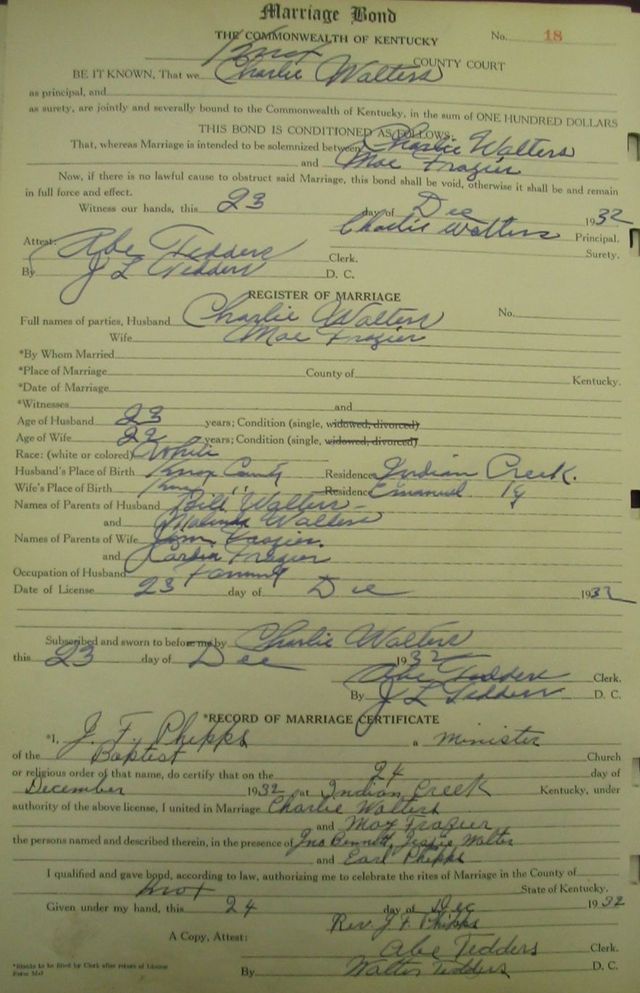 Marriage Bond
THE COMMONWEALTH OF KENTUCKY No. 18
Knox COUNTY COURT
BE IT KNOWN, That we Charlie Walters
as principal, and
as surety, are jointly and severally bound to the Commonwealth of Kentucky, in the sum of ONE HUNDRED DOLLARS
THIS BOND IS CONDITIONED AS FOLLOWS:
That, whereas Marriage is intended to be solemnized between Charlie Walters
and Mae Frazier
Now, if there is no lawful cause to obstruct said Marriage, this bond shall be void, otherwise it shall be and remain
in full force and effect.
Witness our hands, this 23 day of Dec 1932
Charlie Walters Principal.
Attest: Abe Tedders Clerk. Surety.
By J L Tedders D. C.
REGISTER OF MARRIAGE
Full names of parties, Husband Charlie Walters No.
Wife Mae Frazier
*By Whom Married
*Place of Marriage County of Kentucky.
*Date of Marriage
*Witnesses and
Age of Husband 23 years; Condition (single, widowed, divorced)
Age of Wife 22 years; Condition (single, widowed, divorced)
Race: (white or colored) White
Husband's Place of Birth Knox County Residence Indian Creek.
Wife's Place of Birth Knox " Residence Emanuel Ky
Names of Parents of Husband Bill Walters
and Malinda Walters
Names of Parents of Wife Frazier.
and Frazier
Occupation of Husband Farming
Date of License 23 day of Dec 1932
Subscribed and sworn to before me by Charlie Walters
this 23 day of Dec 1932
Abe Tedders Clerk.
By J L Tedders D. C.
*RECORD OF MARRIAGE CERTIFICATE
*I, J. F. Phipps a minister
of the Baptist Church
or religious order of that name, do certify that on the 24 day of
December 1932 at Indian Creek Kentucky, under
authority of the above license, I united in Marriage Charlie Walters
and May Frazier
the persons named and described therein, in the presence of Jno Bennett, Walter
and Earl Phipps
I qualified and gave bond, according to law, authorizing me to celebrate the rites of Marriage in the County of
Knox State of Kentucky.
Given under my hand, this 24 day of Dec 1932
Rev. J F Phipps
A Copy, Attest: Abe Tedders Clerk.
By Walter Tedders D. C.
*Blanks to be filled by Clerk after return of License